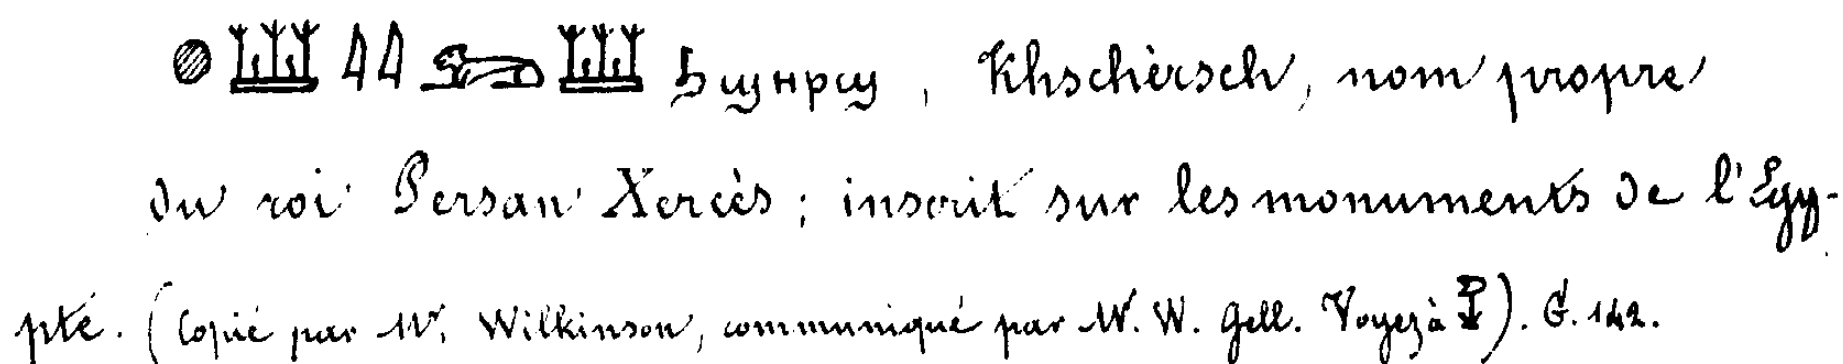 𓐍𓆷𓇋𓇋𓃭𓆷 ϧϣⲏⲣϣ, Khschèrsch, nom propre
du roi Persan Xercès ; inscrit sur les monuments de l'Egy-
pte. (Copié par Mr. Wilkinson, communiqué par M. W. Gell. Voyez à ). G. 142.